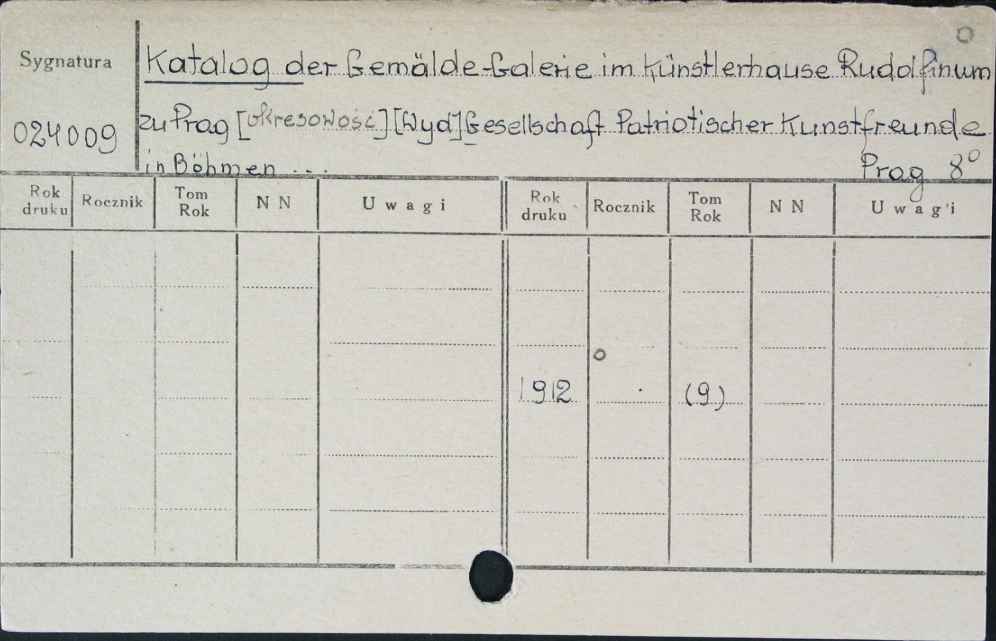 Sygnatura
Katalog der Gemälde-Galerie im Künstlerhause Rudolfinum
024009
zu Prag [okresowość] [Wyd] Gesellschaft Patriotischer Kunstfreunde
in Böhmen ...
Prag 8°
Rok druku Rocznik Tom Rok NN Uwagi Rok druku Rocznik Tom Rok NN Uwagi
1912 (9)